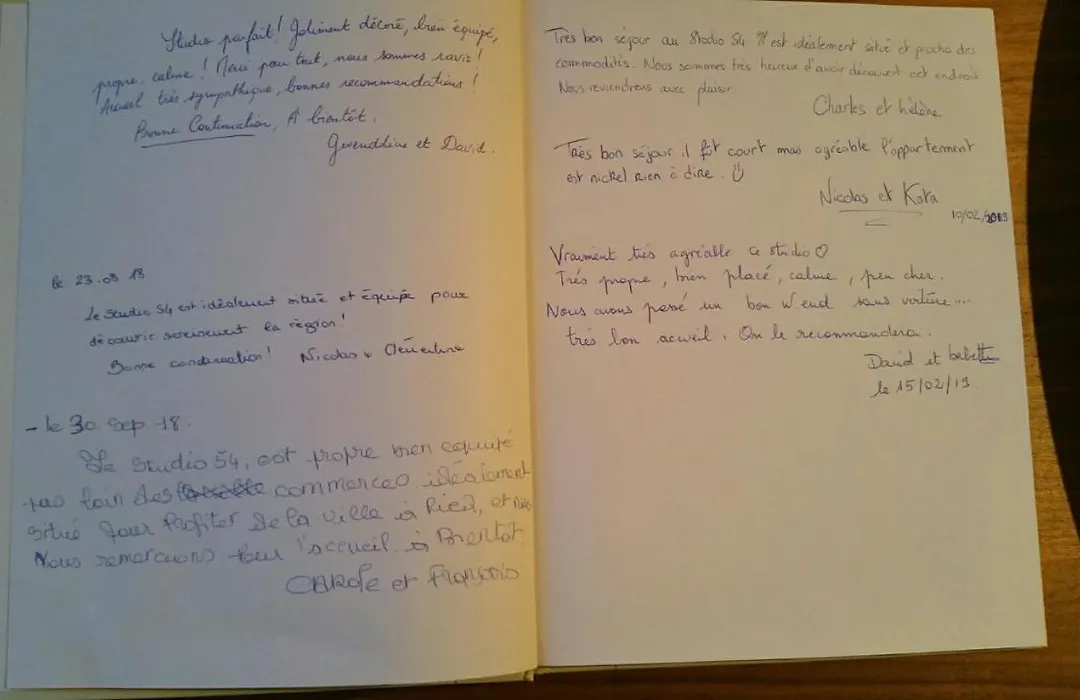 Studio parfait! Joliment décoré, bien équipé,
propre, calme! Merci pour tout, nous sommes ravis!
Accueil très sympathique, bonnes recommandations!
Bonne Continuation, A bientôt.
Gwenddline et David.
le 23.03 18
Le studio 54 est idéalement situé et équipé pour
découvrir sereinement la région!
Bonne continuation! Nicolas & Clémentine
- le 30 Sep 18.
Le studio 54, est propre bien equipé
pas loin des commerces idéalement
situé pour Profiter de la ville à Pied, et
Nous remercions pour l'accueil. à Bientot.
CAROLe et François
Très bon séjour au Studio 54 Il est idéalement situé et proche des
commodités. Nous sommes très heureux d'avoir découvert cet endroit
Nous reviendrons avec plaisir.
Charles et hélène
Très bon séjour il fût court mais agréable l'appartement
est nickel rien à dire. ☺
Nicolas et Kata
10/02/2019
Vraiment très agréable ce studio ♡
Trés propre, bien placé, calme, peu cher.
Nous avons passé un bon W'end sans voiture...
trés bon acueil. On le recommandera.
David et babette
le 15/02/19.